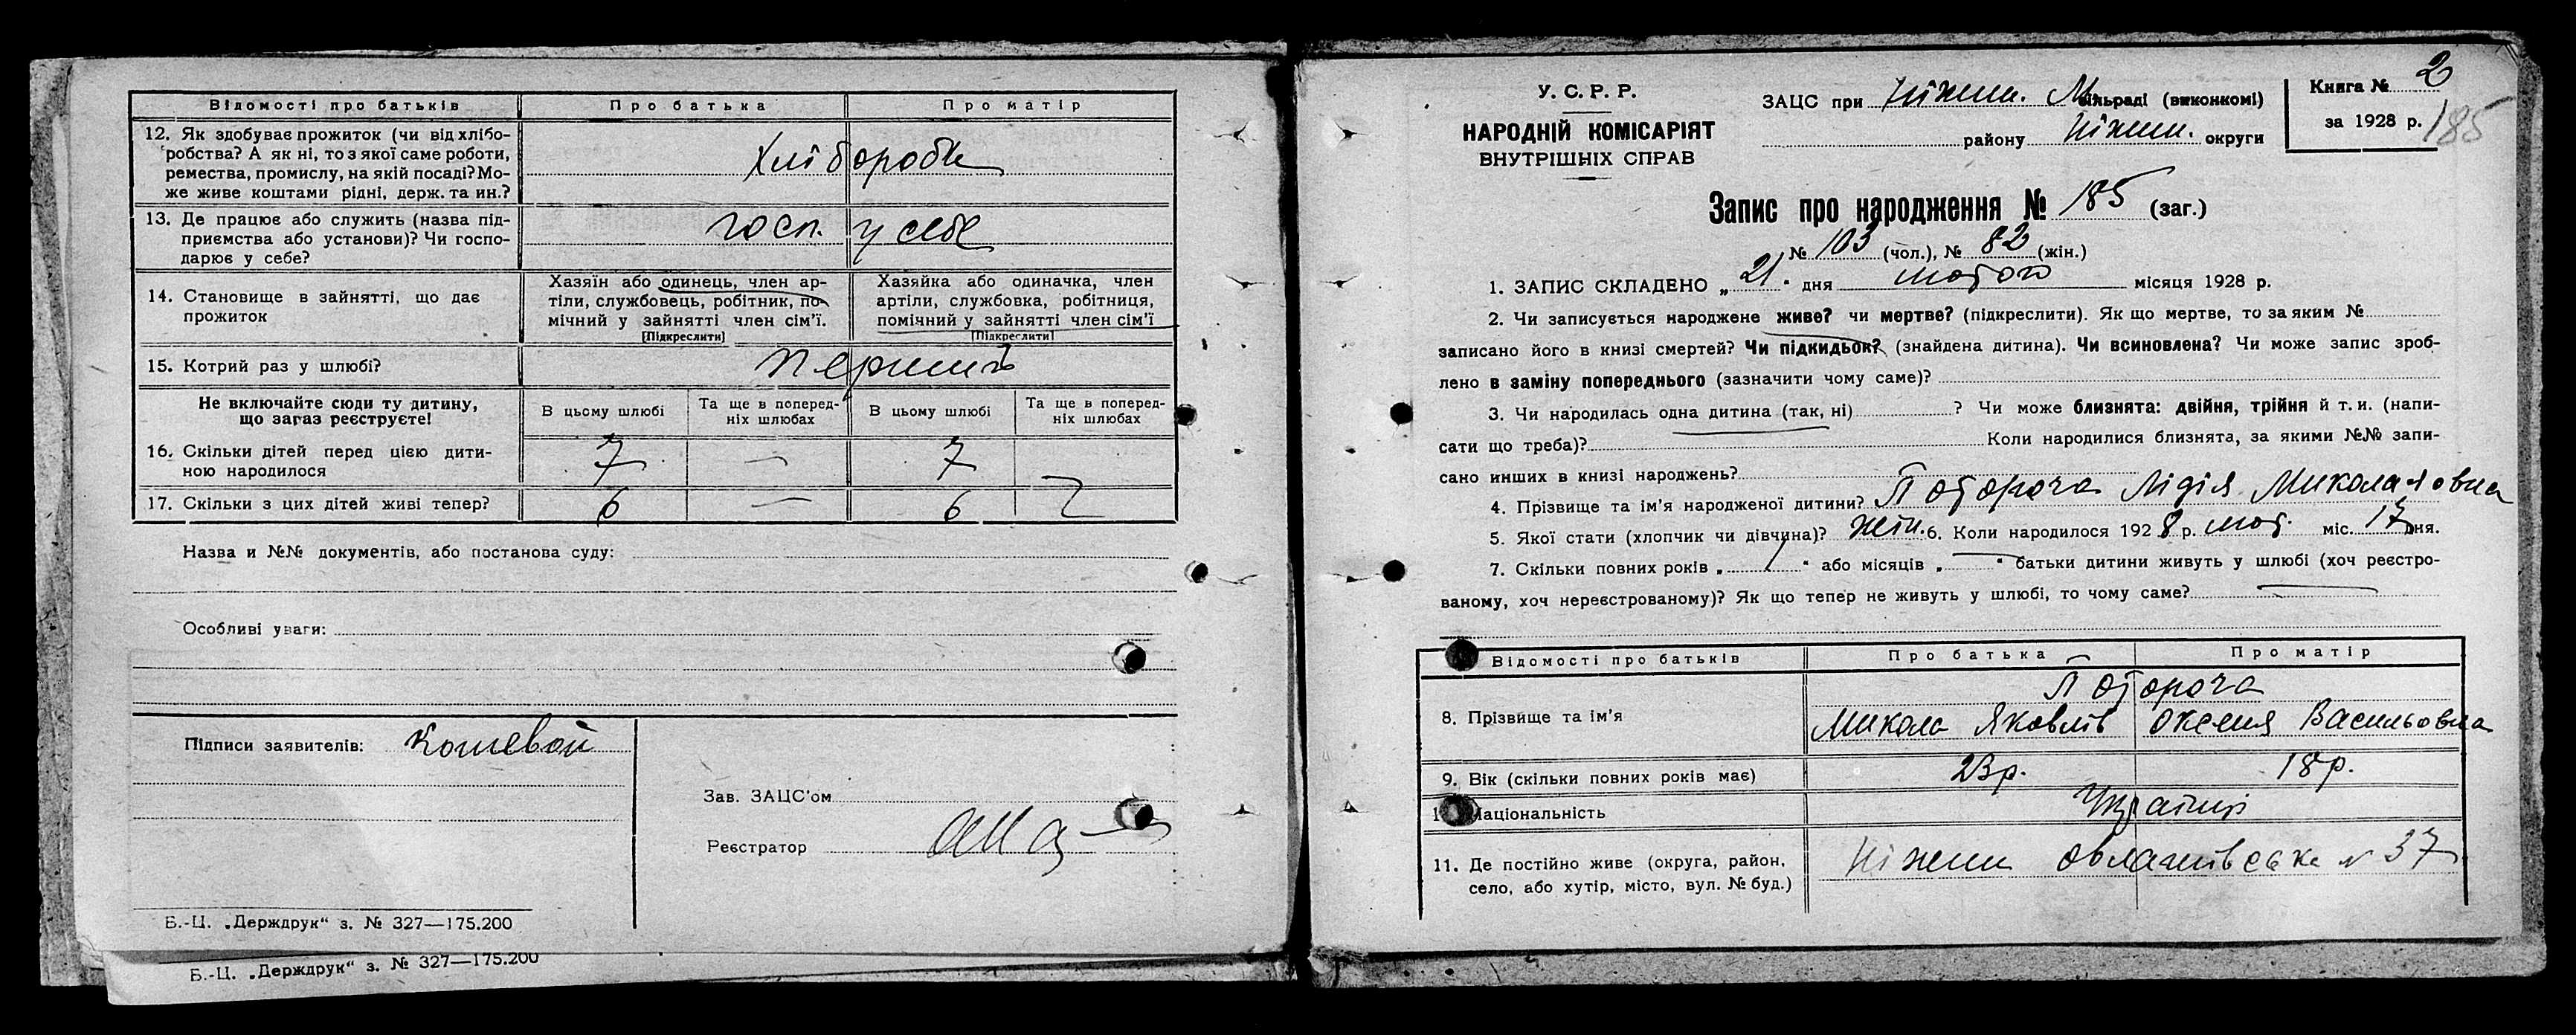 Відомості про батьків
Про батька
Про матір
12. Як здобуває прожиток (чи від хлібо-
робства? А як ні, то з якої саме роботи,
ремества, промислу, на якій посаді? Мо-
же живе коштами рідні, держ. та ин.?
Хлібороби
13. Де працює або служить (назва під-
приємства або установи)? Чи госпо-
дарює у себе?
госп. у себе
14. Становище в зайнятті, що дає
прожиток
Хазяїн або одинець, член ар-
тіли, службовець, робітник, по-
мічний у зайнятті член сім'ї.
(Підкреслити)
Хазяйка або одиначка, член
артіли, службовка, робітниця,
помічний у зайнятті член сім'ї
(Підкреслити)
15. Котрий раз у шлюбі?
Не включайте сюди ту дитину,
що загаз реєструєте!
В цьому шлюбі
Та ще в поперед-
ніх шлюбах
В цьому шлюбі
Та ще в поперед-
ніх шлюбах
16. Скільки дітей перед цією дити-
ною народилося
7 — 7
17. Скільки з цих дітей живі тепер?
6 — 6
Назва и №№ документів, або постанова суду:
Особливі уваги:
Підписи заявителів: Кошевой
Зав. ЗАЦС'ом
Реєстратор
Б.-Ц. „Держдрук“ з. № 327—175.200
Б.-Ц. „Держдрук“ з. № 327—175.200
У. С. Р. Р.
НАРОДНІЙ КОМІСАРІЯТ
ВНУТРІШНІХ СПРАВ
ЗАЦС при Ніжин. М. сільраді (виконкомі)
району Ніжин. округи
Книга № 2
за 1928 р.
185
Запис про народження № 185 (заг.)
№ 103 (чол.), № 82 (жін.)
1. ЗАПИС СКЛАДЕНО „ 21 “ дня лютого місяця 1928 р.
2. Чи записується народжене живе? чи мертве? (підкреслити). Як що мертве, то за яким №
записано його в книзі смертей? Чи підкидьок? (знайдена дитина). Чи всиновлена? Чи може запис зроб-
лено в заміну попереднього (зазначити чому саме)?
3. Чи народилась одна дитина (так, ні) ? Чи може близнята: двійня, трійня й т. и. (напи-
сати що треба)? Коли народилися близнята, за якими №№ запи-
сано инших в книзі народжень?
4. Прізвище та ім'я народженої дитини? Поторочa Лідія Миколаєвна
5. Якої стати (хлопчик чи дівчина)? жін. 6. Коли народилося 1928 р. лют. міс. 17 дня.
7. Скільки повних років „ “ або місяців „ — “ батьки дитини живуть у шлюбі (хоч реєстро-
ваному, хоч нереєстрованому)? Як що тепер не живуть у шлюбі, то чому саме? —
Відомості про батьків
Про батька
Про матір
8. Прізвище та ім'я
Потороча
Микола Яковлів
Оксения Васильовна
9. Вік (скільки повних років має)
23 р.
18 р.
Національність
Українці
11. Де постійно живе (округа, район,
село, або хутір, місто, вул. № буд.)
Ніжин № 37